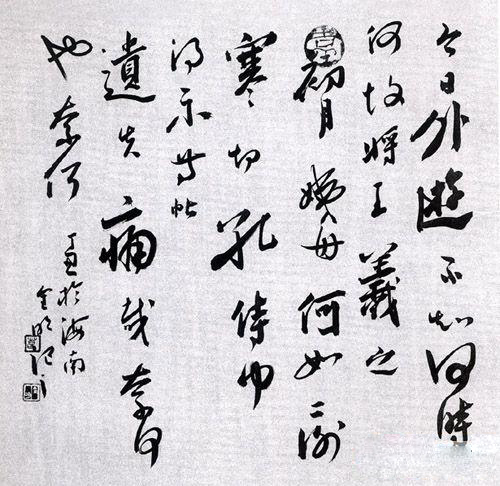 今日外遊不知何時
何故將王羲之
初月姨母何如二謝
寒切孔侍中
得示等帖
遺失痛哉奈何
也奈何
丁丑於海南